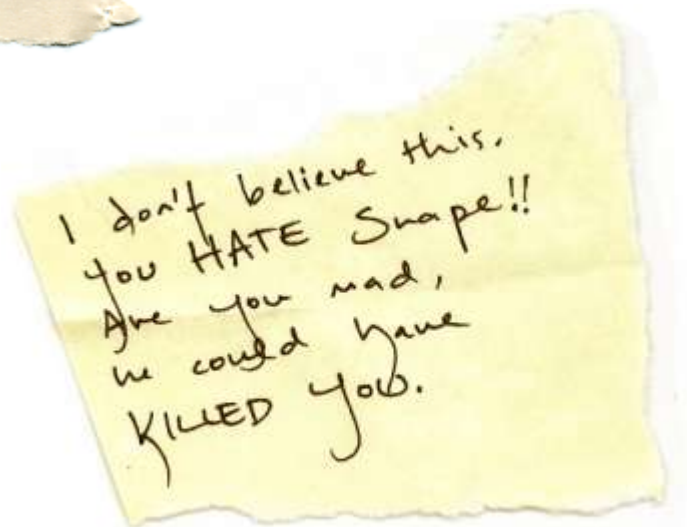 I don't believe this.
you HATE Snape!!
Are you mad,
he could have
KILLED you.